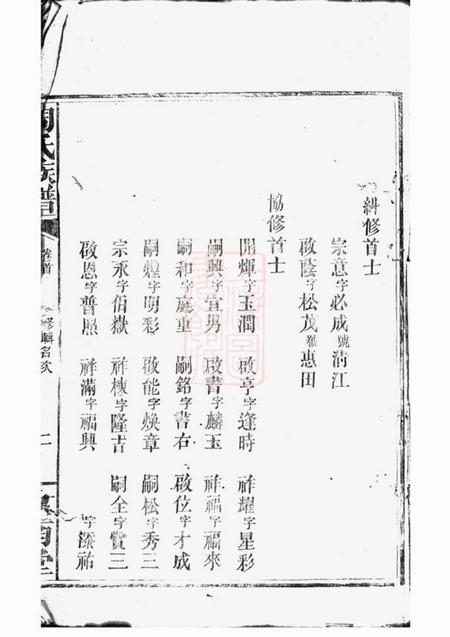 糾修首士
宗意字必成號清江
啟蔭字松茂號惠田
協修首士
開燁字玉潤 啟亨字逢時 祚耀字星彩
嗣興字宜男 啟書字麟玉 祚福字福來
嗣和字 嗣銘字書右 啟位字才成
嗣煌字明彩 啟能字煥章 嗣松字秀三
宗永字伯嶽 祚棟字隆吉 嗣全字賞三
啟恩字普照 祚滿字福興 字深祐
周氏族譜
卷首
修輯名次
二